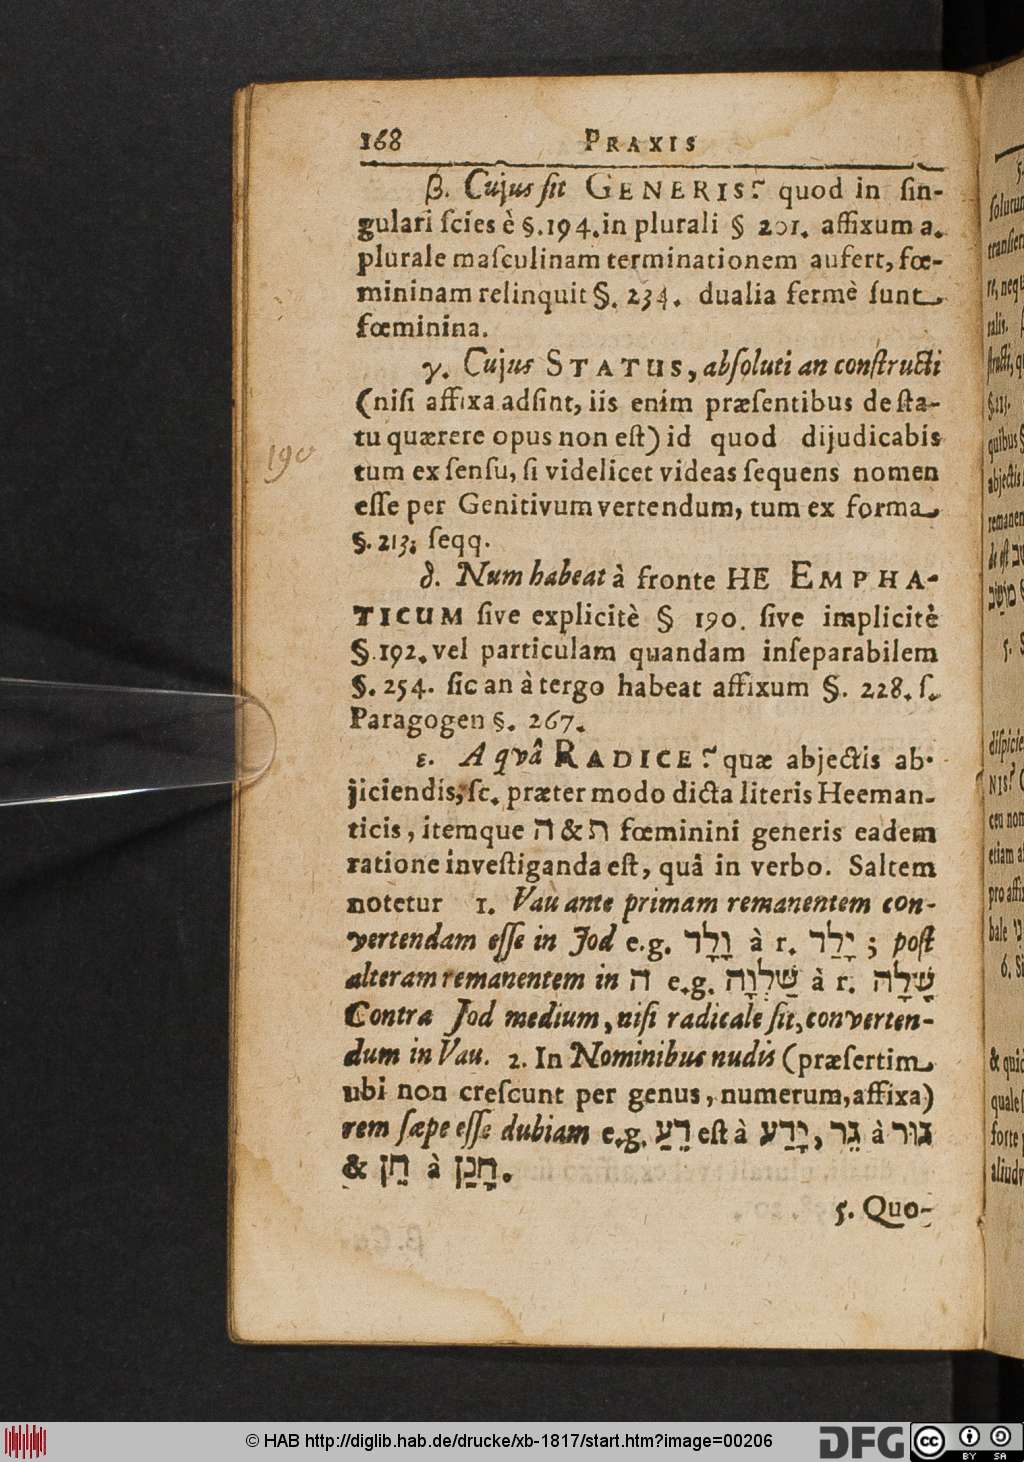 168 PRAXIS
β. Cujus ſit GENERIS? quod in ſin-
gulari ſcies è §. 194. in plurali § 201. affixum a.
plurale maſculinam terminationem aufert, fœ-
mininam relinquit §. 234. dualia fermè ſunt
fœminina.
γ. Cujus STATUS, abſoluti an conſtructi
(niſi affixa adſint, iis enim præſentibus de ſta-
tu quærere opus non eſt) id quod dijudicabis
190
tum ex ſenſu, ſi videlicet videas ſequens nomen
eſſe per Genitivum vertendum, tum ex forma
§. 213. ſeqq.
δ. Num habeat à fronte HE EMPHA-
TICUM ſive explicitè § 190. ſive implicitè
§. 192. vel particulam quandam inſeparabilem
§. 254. ſic an à tergo habeat affixum §. 228. ſ.
Paragogen §. 267.
ε. A qvâ RADICE? quæ abjectis ab-
jiciendis, ſc. præter modo dicta literis Heeman-
ticis, itemque ה & ת fœminini generis eadem
ratione inveſtiganda eſt, quâ in verbo. Saltem
notetur 1. Vau ante primam remanentem con-
vertendam eſſe in Jod e.g. וָלָד à r. יָלַד ; poſt
alteram remanentem in ה e.g. שַׁלְוָה à r. שָׁלָה
Contra Jod medium, niſi radicale ſit, converten-
dum in Vau. 2. In Nominibus nudis (præſertim
ubi non creſcunt per genus, numerum, affixa)
rem ſæpe eſſe dubiam e.g. דֵּעַ eſt à יָדַע, גֵּר à גּוּר
& חֵן à חָנַן.
5. Quo-
© HAB http://diglib.hab.de/drucke/xb-1817/start.htm?image=00206
DFG
cc BY SA